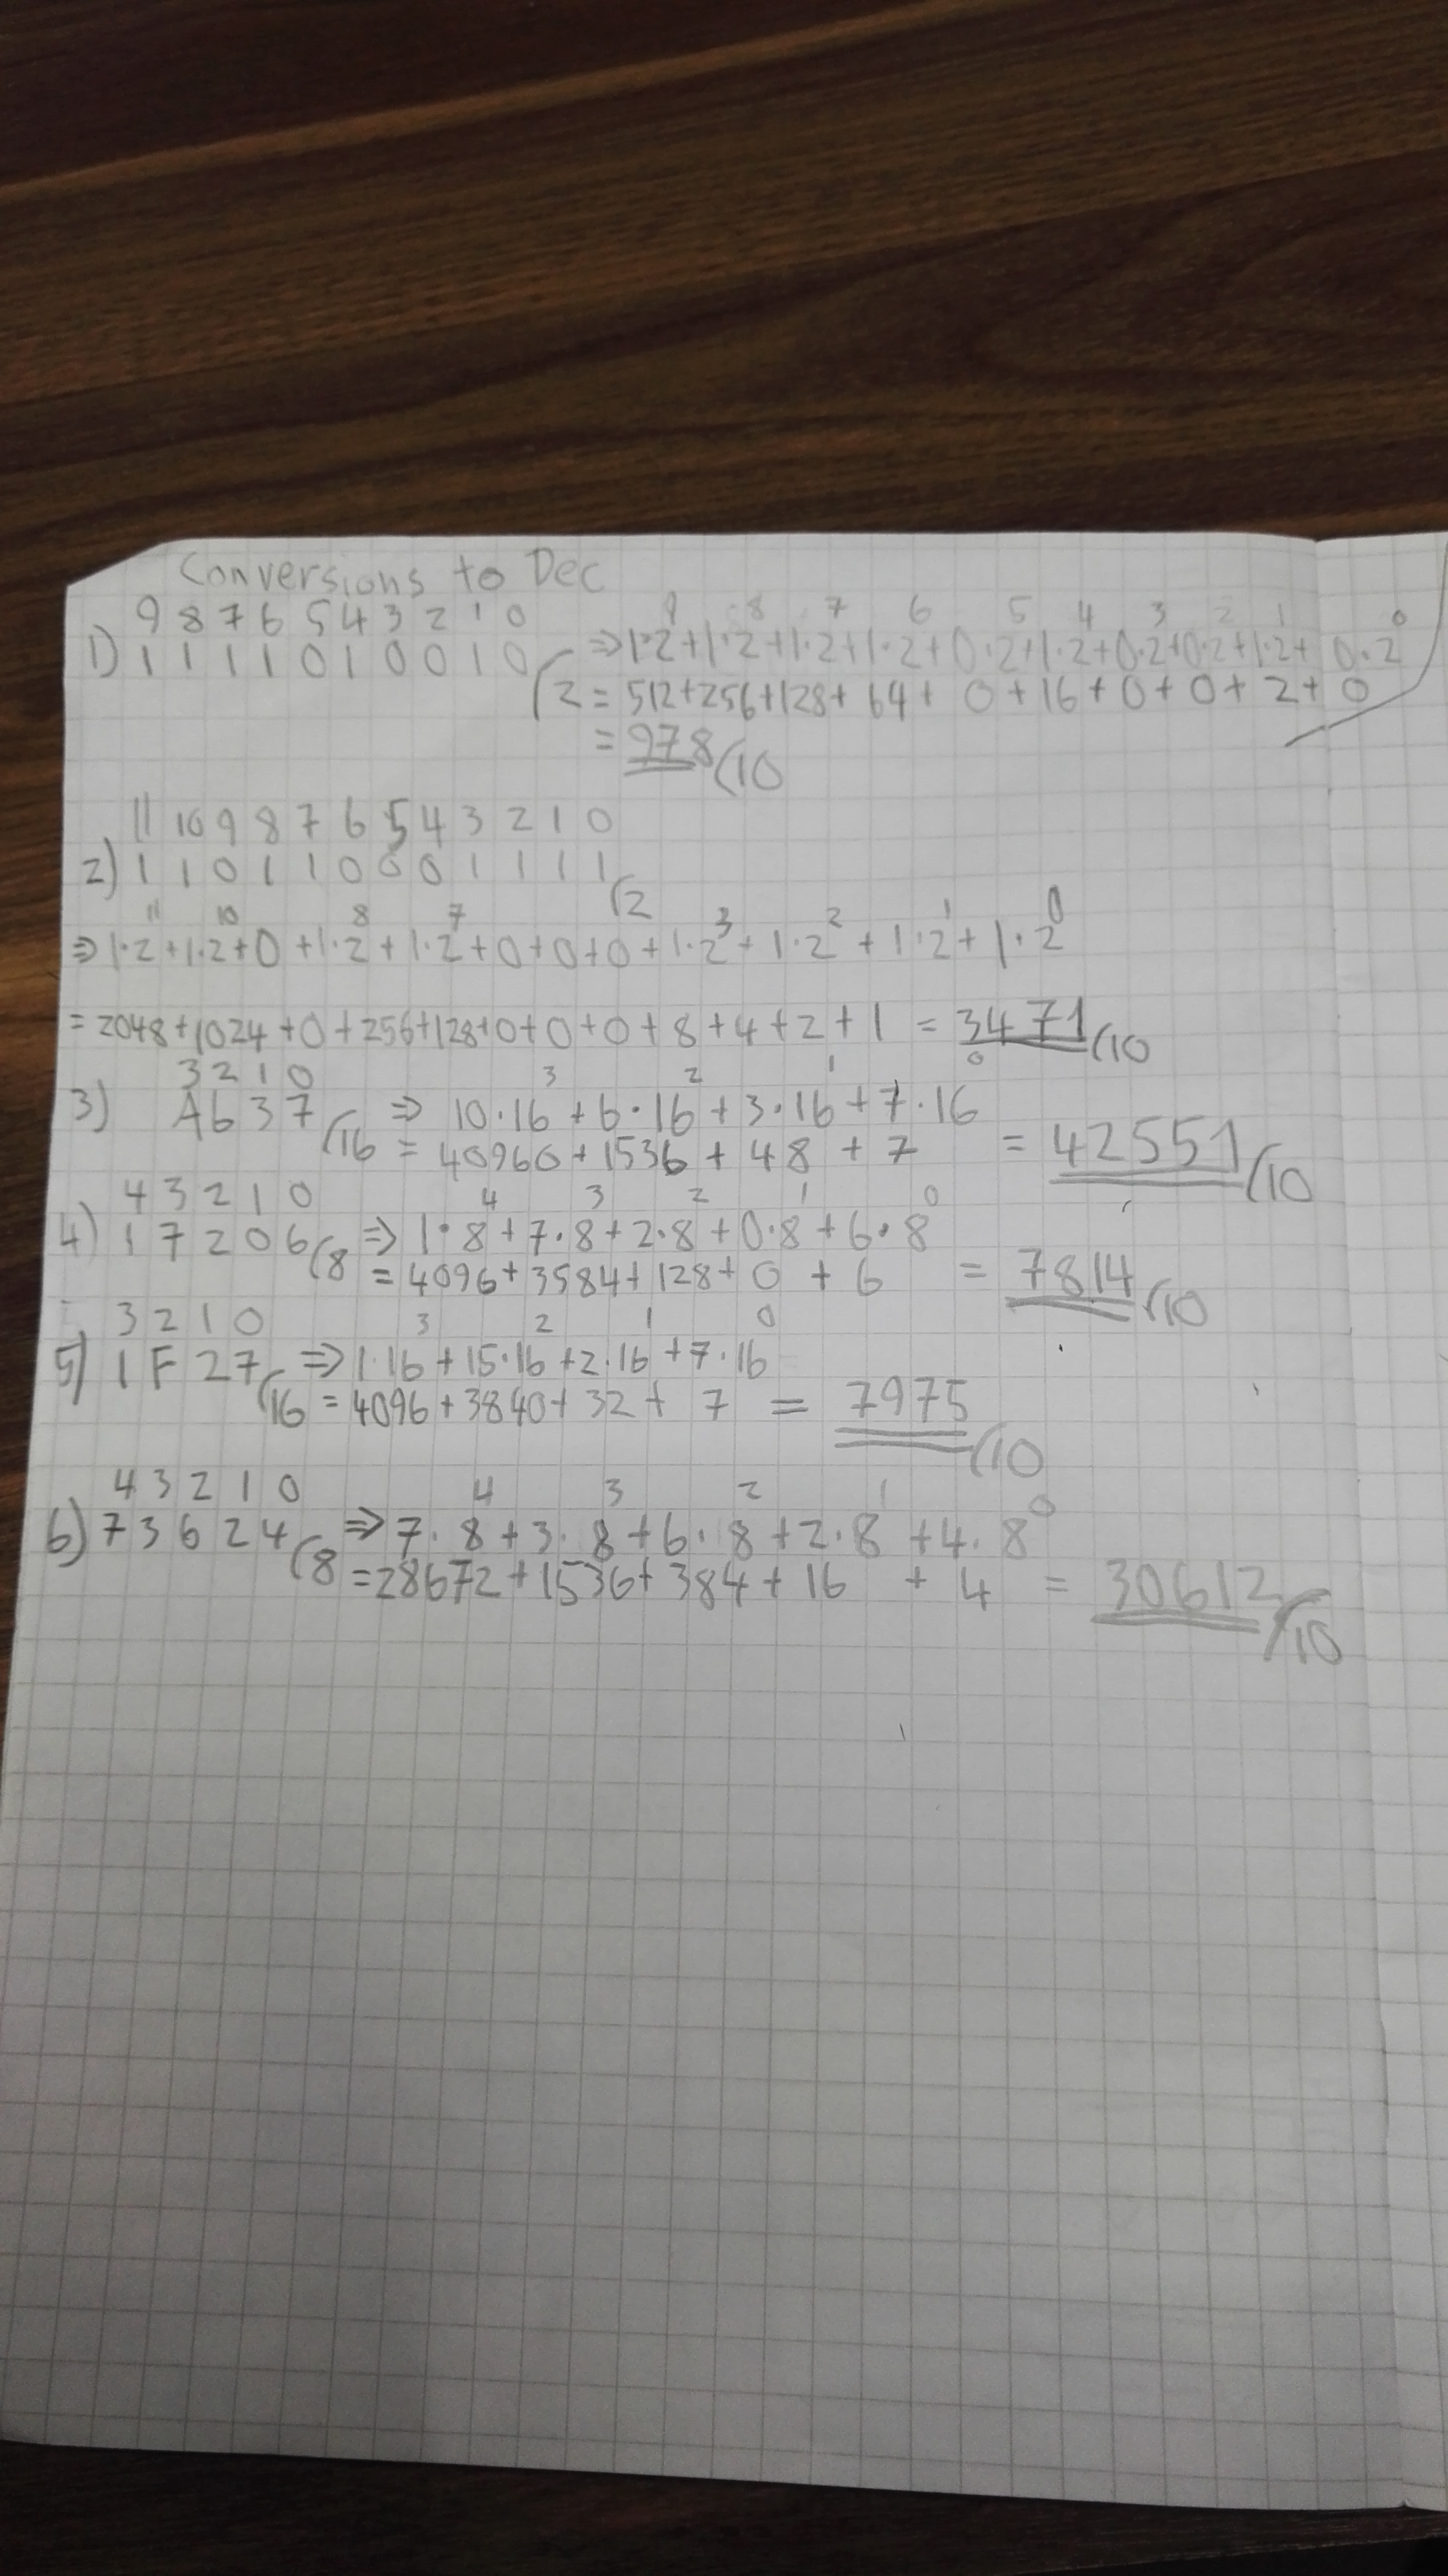 Conversions to Dec
9 8 7 6 5 4 3 2 1 0
1) 1 1 1 1 0 1 0 0 1 0 (2 ⇒ 1·2⁹+1·2⁸+1·2⁷+1·2⁶+0·2⁵+1·2⁴+0·2³+0·2²+1·2¹+0·2⁰
= 512+256+128+64+0+16+0+0+2+0
= 978(10
11 10 9 8 7 6 5 4 3 2 1 0
2) 1 1 0 1 1 0 0 0 1 1 1 1 (2
⇒ 1·2¹¹+1·2¹⁰+0+1·2⁸+1·2⁷+0+0+0+1·2³+1·2²+1·2¹+1·2⁰
= 2048+1024+0+256+128+0+0+0+8+4+2+1 = 3471(10
3 2 1 0
3) A637(16 ⇒ 10·16³+6·16²+3·16¹+7·16⁰
= 40960+1536+48+7 = 42551(10
4 3 2 1 0
4) 17206(8 ⇒ 1·8⁴+7·8³+2·8²+0·8¹+6·8⁰
= 4096+3584+128+0+6 = 7814(10
3 2 1 0
5) 1F27(16 ⇒ 1·16³+15·16²+2·16¹+7·16⁰
= 4096+3840+32+7 = 7975(10
4 3 2 1 0
6) 73624(8 ⇒ 7·8⁴+3·8³+6·8²+2·8¹+4·8⁰
= 28672+1536+384+16+4 = 30612(10